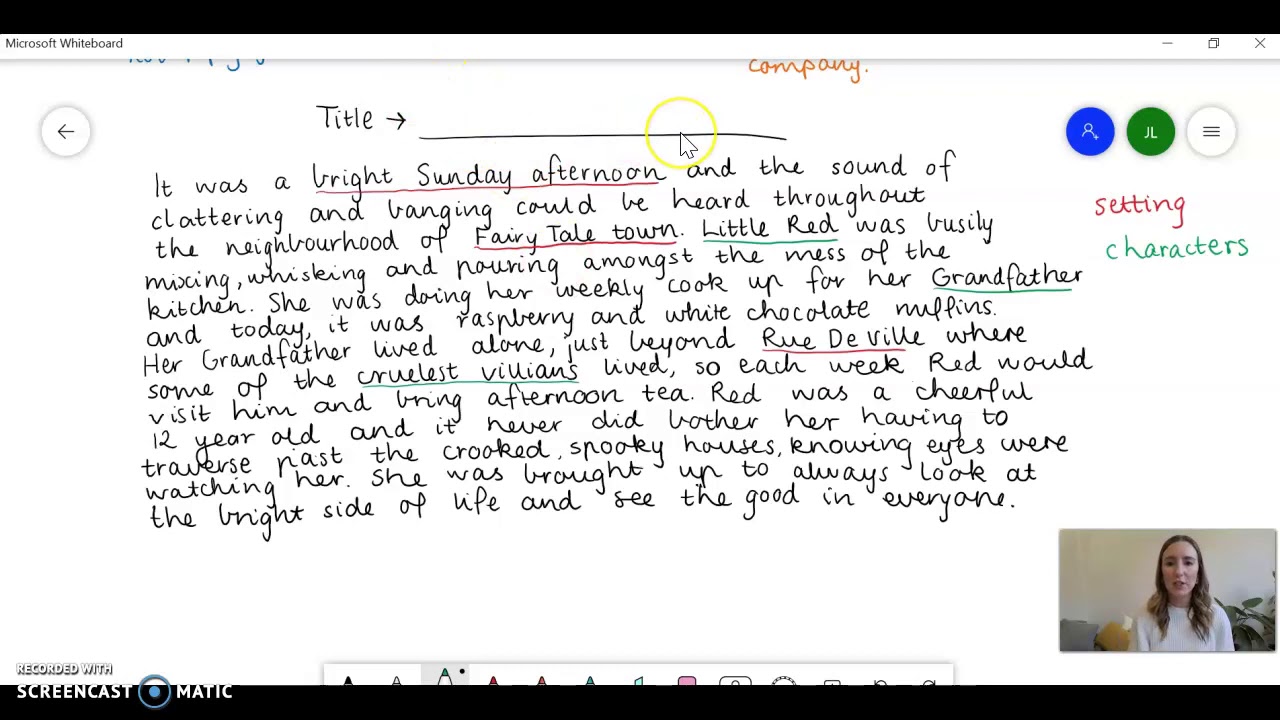 Microsoft Whiteboard
company.
Title →
It was a bright Sunday afternoon and the sound of
clattering and banging could be heard throughout
the neighbourhood of Fairy Tale town. Little Red was busily
mixing, whisking and pouring amongst the mess of the
kitchen. She was doing her weekly cook up for her Grandfather
and today, it was raspberry and white chocolate muffins.
Her Grandfather lived alone, just beyond Rue De Ville where
some of the cruelest villians lived, so each week Red would
visit him and bring afternoon tea. Red was a cheerful
12 year old and it never did bother her having to
traverse past the crooked, spooky houses, knowing eyes were
watching her. She was brought up to always look at
the bright side of life and see the good in everyone.
JL
setting
characters
RECORDED WITH
SCREENCAST MATIC